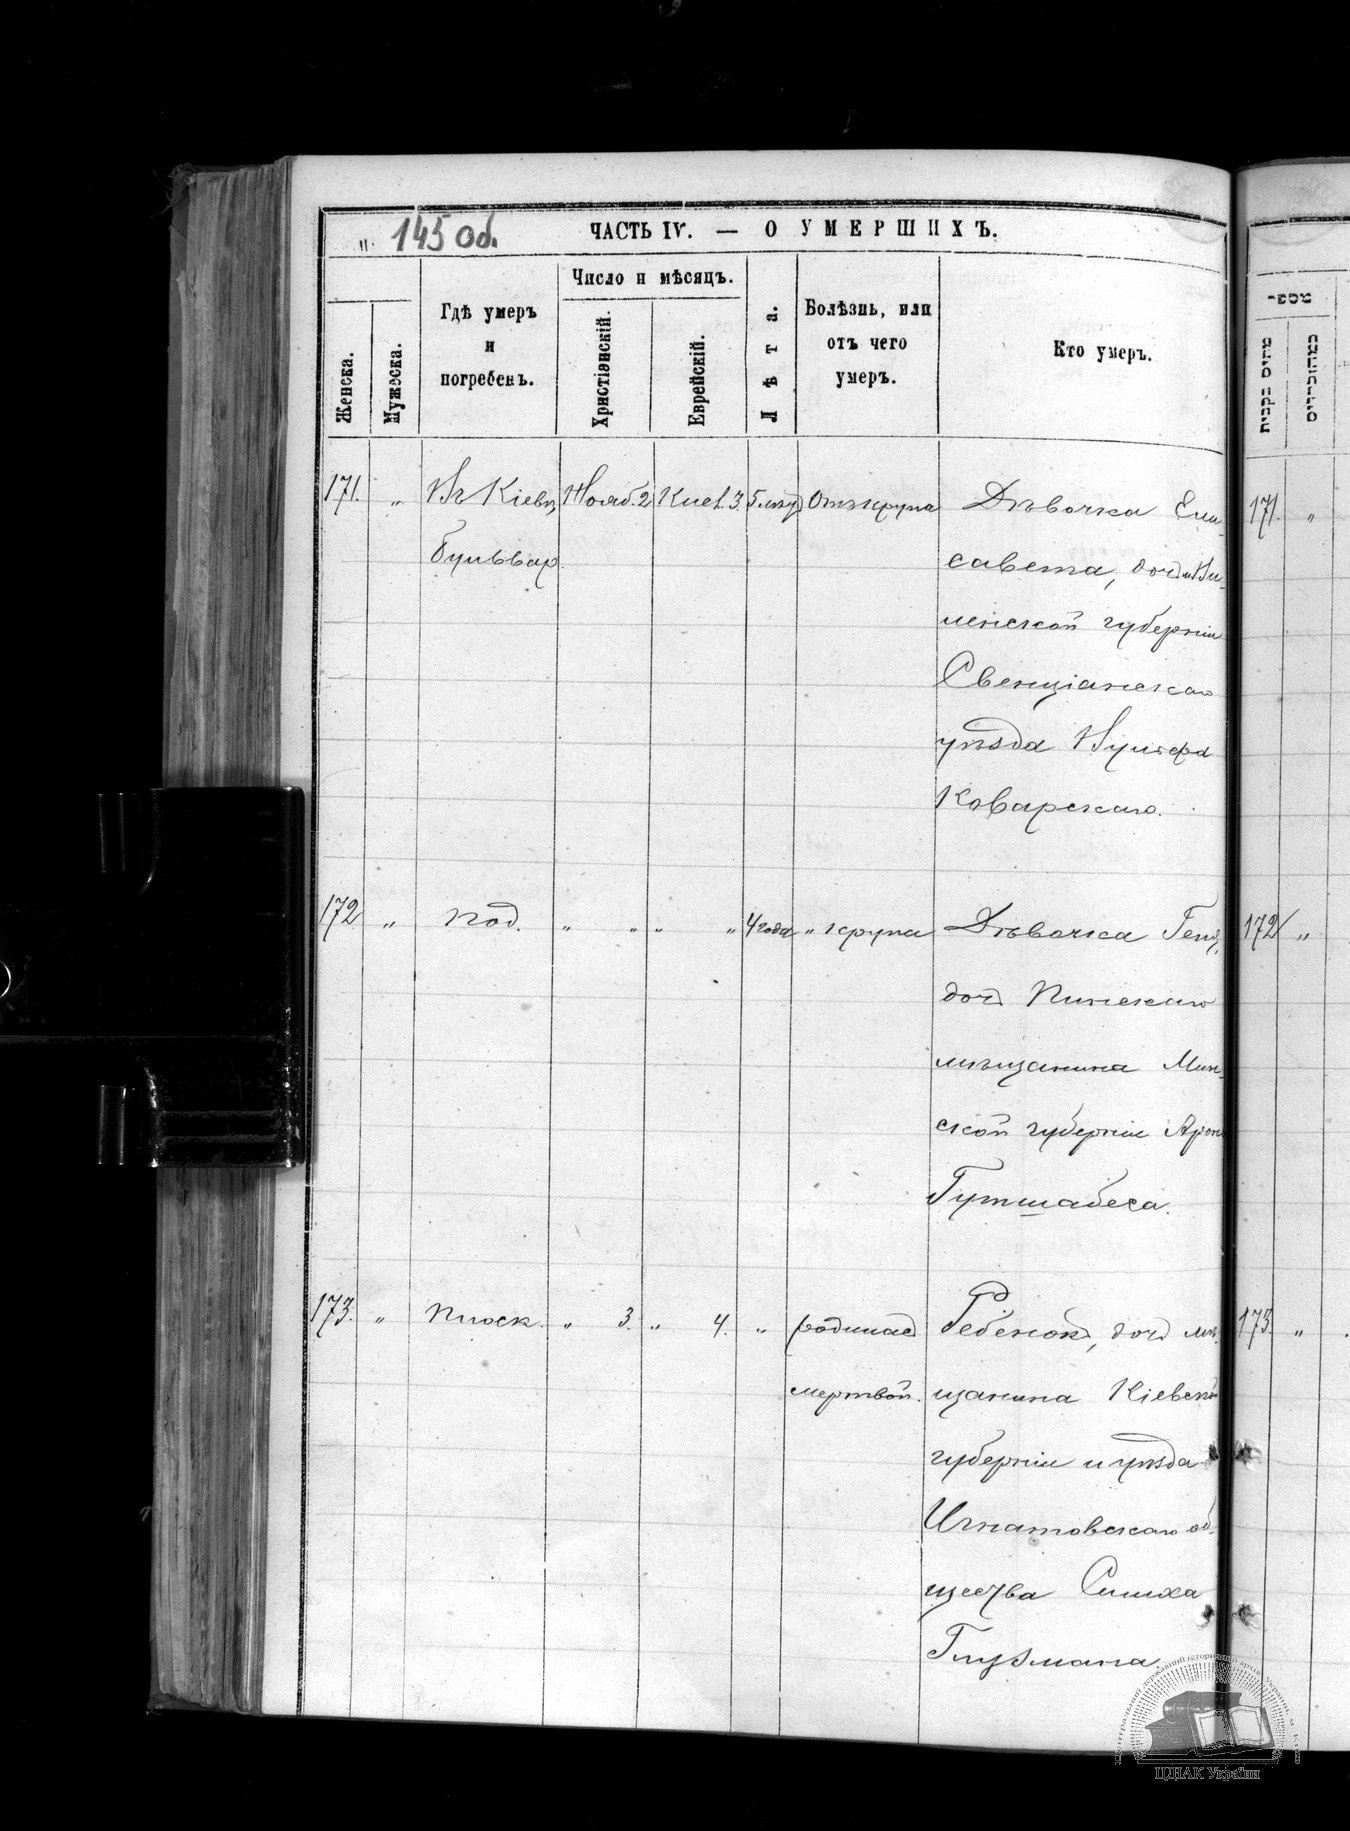 „ 145 Об.
ЧАСТЬ IV. — О УМЕРШИХЪ.
Женска.
Мужеска.
Гдѣ умеръ
и
погребенъ.
Число и мѣсяцъ.
Христіанскій.
Еврейскій.
Лѣта.
Болѣзнь, или
отъ чего
умеръ.
Кто умеръ.
מספר
171. „ Въ Кіевѣ Нояб. 2 Кисл. 3. 5 лѣтъ Отъ крупа Дѣвочка Ели-
бульвар. савета, дочь Ви-
ленской губерніи
Свенцianскаго
уѣзда Вульфа
Коварскаго.
171. „
172 „ Под. „ „ „ „ 4 года „ крупа Дѣвочка Геня,
дочь Пинскаго
мѣщанина Мин-
ской губерніи Арона
Гутшабеса.
172 „
173. „ Плоск. „ 3. „ 4. „ родилась Ребенокъ, дочь мѣ-
мертвой. щанина Кіевской
губерніи и уѣзда
Игнатовскаго об-
щества Симха
Глузмана.
173 „
ЦДІАК України